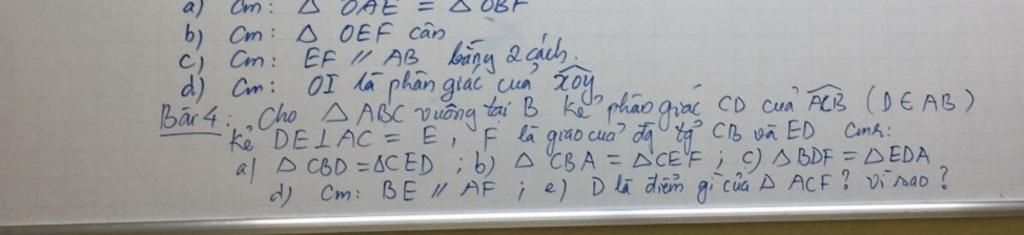 a) Cm: △ OAE = △ OBF
b) Cm: △ OEF cân
c) Cm: EF // AB bằng 2 cách.
d) Cm: OI là phân giác của xOy
Bài 4: Cho △ ABC vuông tại B kẻ phân giác CD của ACB (D ∈ AB)
kẻ DE⊥AC = E, F là giao của đg tg CB và ED Cmr:
a) △ CBD = △CED ; b) △ CBA = △CEF ; c) △ BDF = △ EDA
d) Cm: BE // AF ; e) D là điểm gì của △ ACF? vì sao?